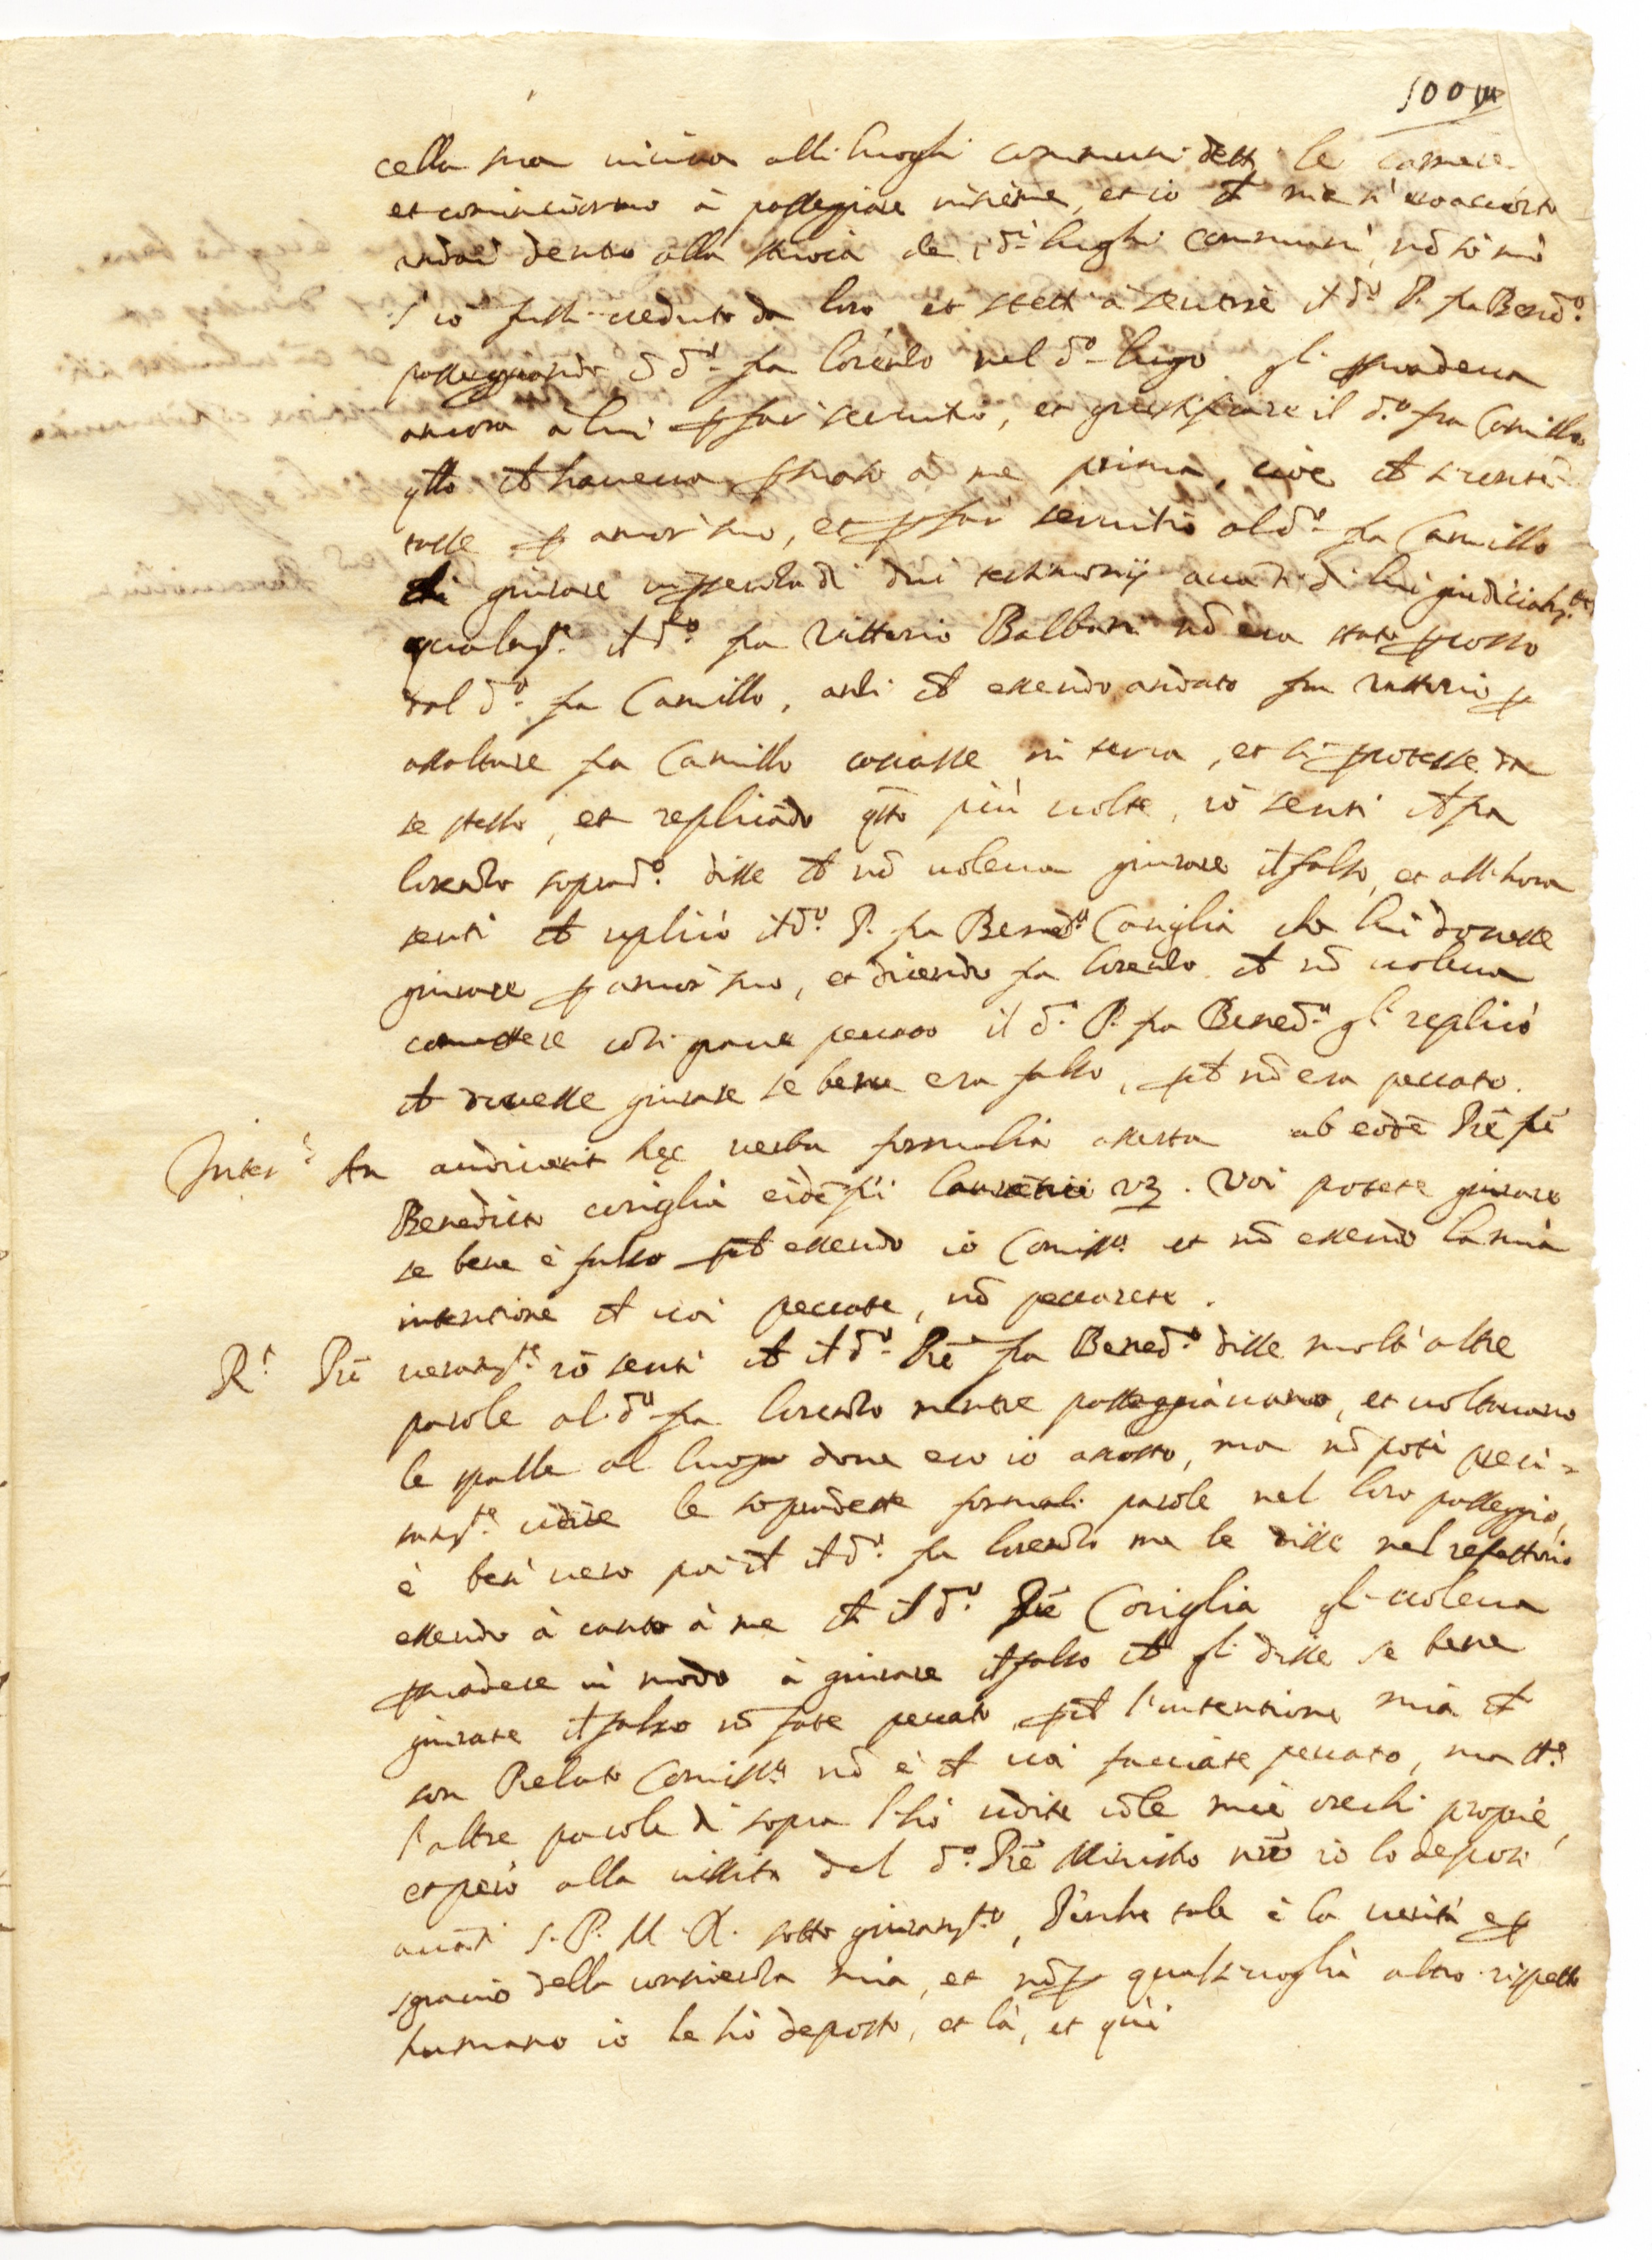 100
cella sua vicina alli luoghi communi dette le camere
et cominciorno à passeggiare insieme, et io ch me n'ero accorto
andai dentro alla stuoia de i di luoghi communi, nō sò mò
s'io fussi veduto da loro et stetti à sentire il do P. fra Bendo
passeggiando do fra Lorenzo nel do luogo gli psuadeva
ancora à lui p far servitio, et gratificare il do fra Camillo
qllo ch haveva psuaso à me prima, cioe ch
p amor suo, et p far servitio al do fra Camillo
giurare in psenza di dui testimonij avanti di lui
qualmte il do fra Vittorio Balbani nō era stato pcosso
dal do fra Camillo, anzi ch essendo andato fra Vittorio p
assaltare fra Camillo cascasse in terra, et si pcotesse da
se stesso, et replicādo qsto più volte, io senti ch fra
Lorenzo soprado disse ch nō voleva giurare il falso, et all'hora
senti ch replicò il do P. fra Benedo Coriglia che lui dovesse
giurare p amor suo, et dicendo fra Lorenzo ch nō voleva
comettere cosi grave peccato il do P. fra Benedo gli replicò
ch dovesse giurare se bene era falso, pch nō era peccato.
Inters An audiverit hęc verba formalia asserta ab eodē Prē frē
Benedicto coriglia eidē fri Laurētio vz. Voi potete giurare
se bene è falso pch essendo io Comissro et nō essendo la mia
intentione ch voi peccate, nō peccarete.
Rt Prē veramte io senti ch il do Prē fra Benedo disse molt'altre
parole al do fra Lorenzo mentre passeggiàvano, et voltavano
le spalle al luogo dove ero io ascosto, ma nō potei preci=
samte udire le sopradette formali parole nel loro passeggio,
è ben vero poi ch il do fra Lorenzo me le disse nel refettorio
essendo à canto à me ch il do Prē Coriglia gli voleva
psuadere in modo à giurare il falso ch gli disse se bene
giurate il falso nō fate peccato, pch l'intentione mia ch
son Prelato Comissro nō è ch voi facciate peccato, ma tte
l'altre parole di sopra l'hò udite cō le mie orechi proprie,
et però alla visita del do Prē Ministro nro io lo deposi
avāti S. P. M. R. sotto giuramto, Perche tale è la verità et p
sgravio della conscienza mia, et nō p qualsivoglia altro rispetto
humano io le hò deposto, et là, et quì